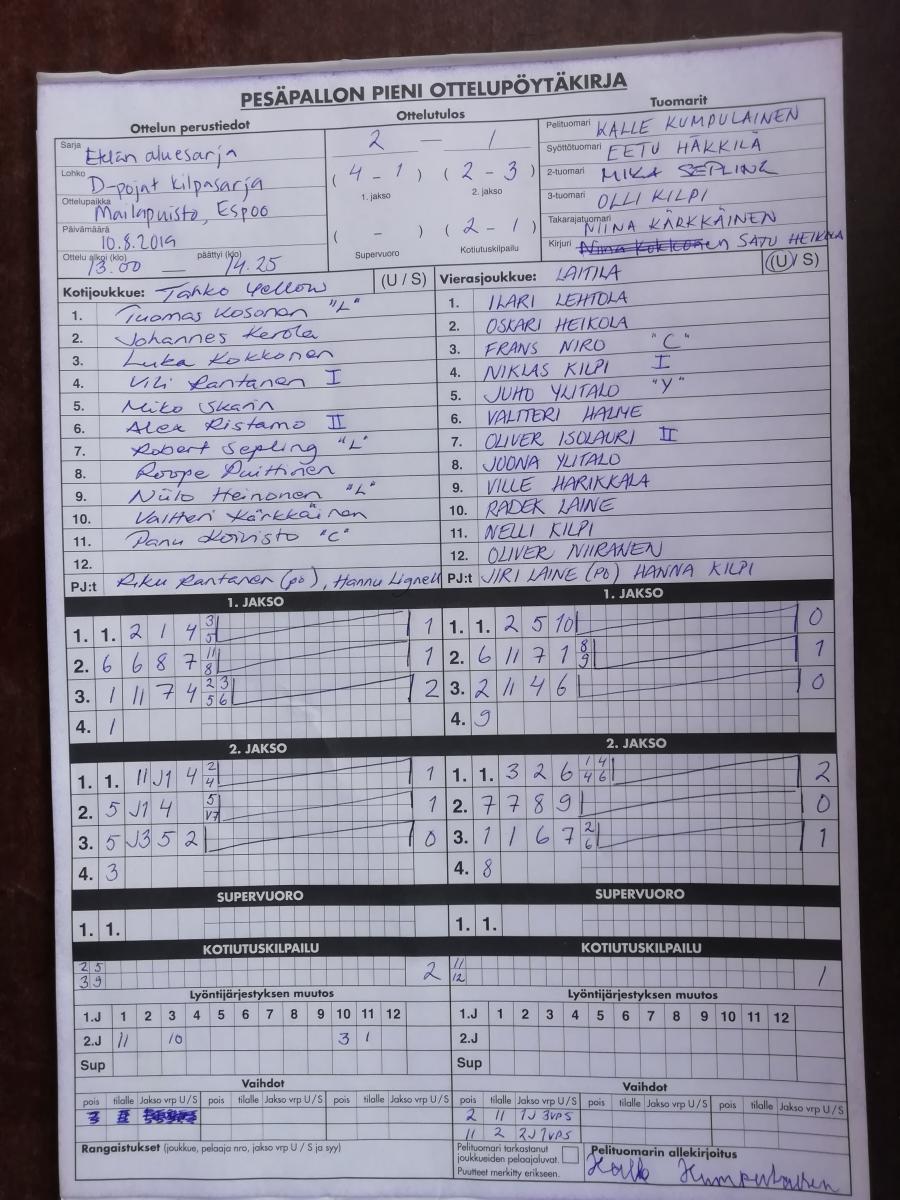 PESÄPALLON PIENI OTTELUPÖYTÄKIRJA
Ottelun perustiedot
Sarja Etelän aluesarja
Lohko D-pojat kilpasarja
Ottelupaikka Mailapuisto, Espoo
Päivämäärä 10.8.2019
Ottelu alkoi (klo) päättyi (klo)
13.00 — 14.25
Ottelutulos
2 — 1
( 4 - 1 ) ( 2 - 3 )
1. jakso 2. jakso
( - ) ( 2 - 1 )
Supervuoro Kotiutuskilpailu
Tuomarit
Pelituomari KALLE KUMPULAINEN
Syöttötuomari EETU HÄKKILÄ
2-tuomari MIKA SEPLING
3-tuomari OLLI KILPI
Takarajatuomari NIINA KÄRKKÄINEN
Kirjuri SATU HEIKOLA
Kotijoukkue: Tahko Yellow (U / S)
1. Tuomas Kosonen "L"
2. Johannes Kerola
3. Luka Kokkonen
4. Vili Rantanen I
5. Miko Skarin
6. Alex Ristamo II
7. Robert Sepling "L"
8. Roope Puittinen
9. Niilo Heinonen "L"
10. Valtteri Kärkkäinen
11. Panu Koivisto "C"
12.
PJ:t Riku Rantanen (po), Hannu Lignell
Vierasjoukkue: LAITILA (U / S)
1. ILARI LEHTOLA
2. OSKARI HEIKOLA
3. FRANS NIRO "C"
4. NIKLAS KILPI I
5. JUHO YLITALO "Y"
6. VALTTERI HALME
7. OLIVER ISOLAURI II
8. JOONA YLITALO
9. VILLE HARIKKALA
10. RADEK LAINE
11. NELLI KILPI
12. OLIVER NIIRANEN
PJ:t JIRI LAINE (PO) HANNA KILPI
1. JAKSO
1. 1. 2 1 4 3 5 1
2. 6 6 8 7 11 8 1
3. 1 11 7 4 2 3 5 6 2
4. 1
1. JAKSO
1. 1. 2 5 10 0
2. 6 11 7 1 8 9 1
3. 2 11 4 6 0
4. 9
2. JAKSO
1. 1. 11 J1 4 2 4 1
2. 5 J1 4 5 V7 1
3. 5 J3 5 2 0
4. 3
2. JAKSO
1. 1. 3 2 6 1 4 4 6 2
2. 7 7 8 9 0
3. 1 1 6 7 2 6 1
4. 8
SUPERVUORO
1. 1.
SUPERVUORO
1. 1.
KOTIUTUSKILPAILU
2 5
3 9 2
KOTIUTUSKILPAILU
11
12 1
Lyöntijärjestyksen muutos
1.J 1 2 3 4 5 6 7 8 9 10 11 12
2.J 11 10 3 1
Sup
Lyöntijärjestyksen muutos
1.J 1 2 3 4 5 6 7 8 9 10 11 12
2.J
Sup
Vaihdot
pois tilalle Jakso vrp U/S pois tilalle Jakso vrp U/S pois tilalle Jakso vrp U/S
Vaihdot
pois tilalle Jakso vrp U/S pois tilalle Jakso vrp U/S pois tilalle Jakso vrp U/S
2 11 1J 3VPS
11 2 2J 1VPS
Rangaistukset (joukkue, pelaaja nro, jakso vrp U / S ja syy)
Pelituomari tarkastanut
joukkueiden pelaajaluvat.
Puutteet merkitty erikseen.
Pelituomarin allekirjoitus
Kalle Kumpulainen